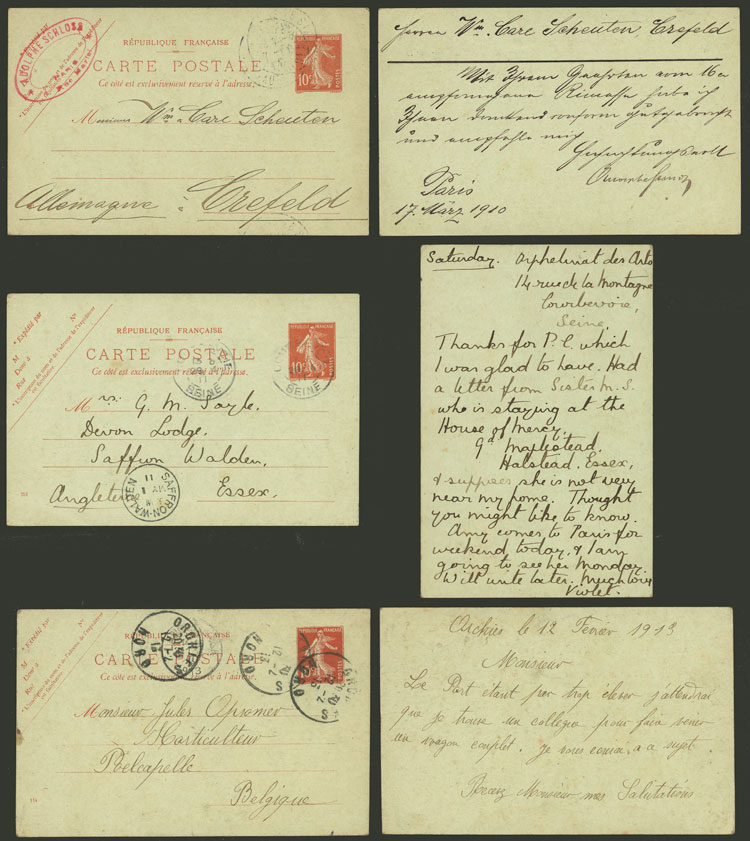 ADOLPHE SCHLOSS
PARIS
RÉPUBLIQUE FRANÇAISE
CARTE POSTALE
Ce côté est exclusivement réservé à l'adresse.
10c
Wm & Carl Scheuten
Allemagne à Crefeld
Herren Wm. Carl Scheuten, Crefeld
Mit Ihrem Geehrten vom 16n
empfangene Rimesse habe ich
Ihnen dankend conform gutgebracht
und empfehle mich
Hochachtungsvoll
Paris
17. März 1910
M
Expédié par
Nº
Rue
RÉPUBLIQUE FRANÇAISE
CARTE POSTALE
Ce côté est exclusivement réservé à l'adresse.
10c
SEINE
SEINE
Mrs. G. M. Sayle,
Devon Lodge,
Saffron Walden,
Angleterre Essex.
SAFFRON-WALDEN
MY 1
11
Saturday. Orphelinat des Arts
14 rue de la Montagne
Courbevoie,
Seine
Thanks for P.C. which
I was glad to have. Had
a letter from Sister M. S.
who is staying at the
House of Mercy,
Gt Maplestead,
Halstead, Essex,
& suppose she is not very
near my home. Thought
you might like to know.
Amy comes to Paris for
weekend today, & I am
going to see her Monday
Will write later. Much love
Violet.
M
Expédié par
Nº
Rue
RÉPUBLIQUE FRANÇAISE
CARTE POSTALE
Ce côté est exclusivement réservé à l'adresse.
ORCHIES
NORD
Monsieur Jules Opsomer
Horticulteur
Poelcapelle
Belgique
Orchies le 12 Fevrier 1913
Monsieur
Le Port étant par trop élever j'attendrai
que je trouve un collegue pour faire venir
un wagon complet. je vous a ce sujet.
Recevez Monsieur mes Salutations